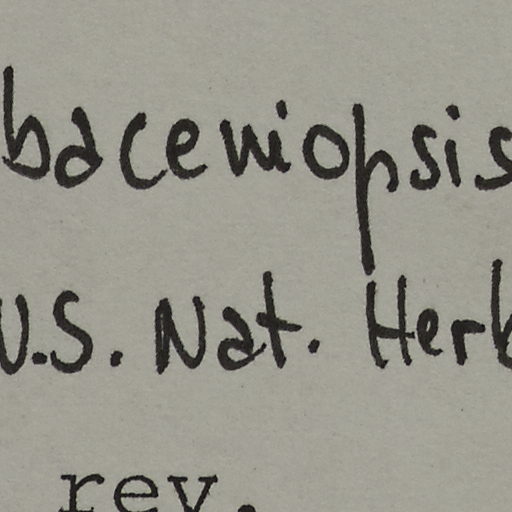 baceniopsis
U.S. Nat. Herb
rev.